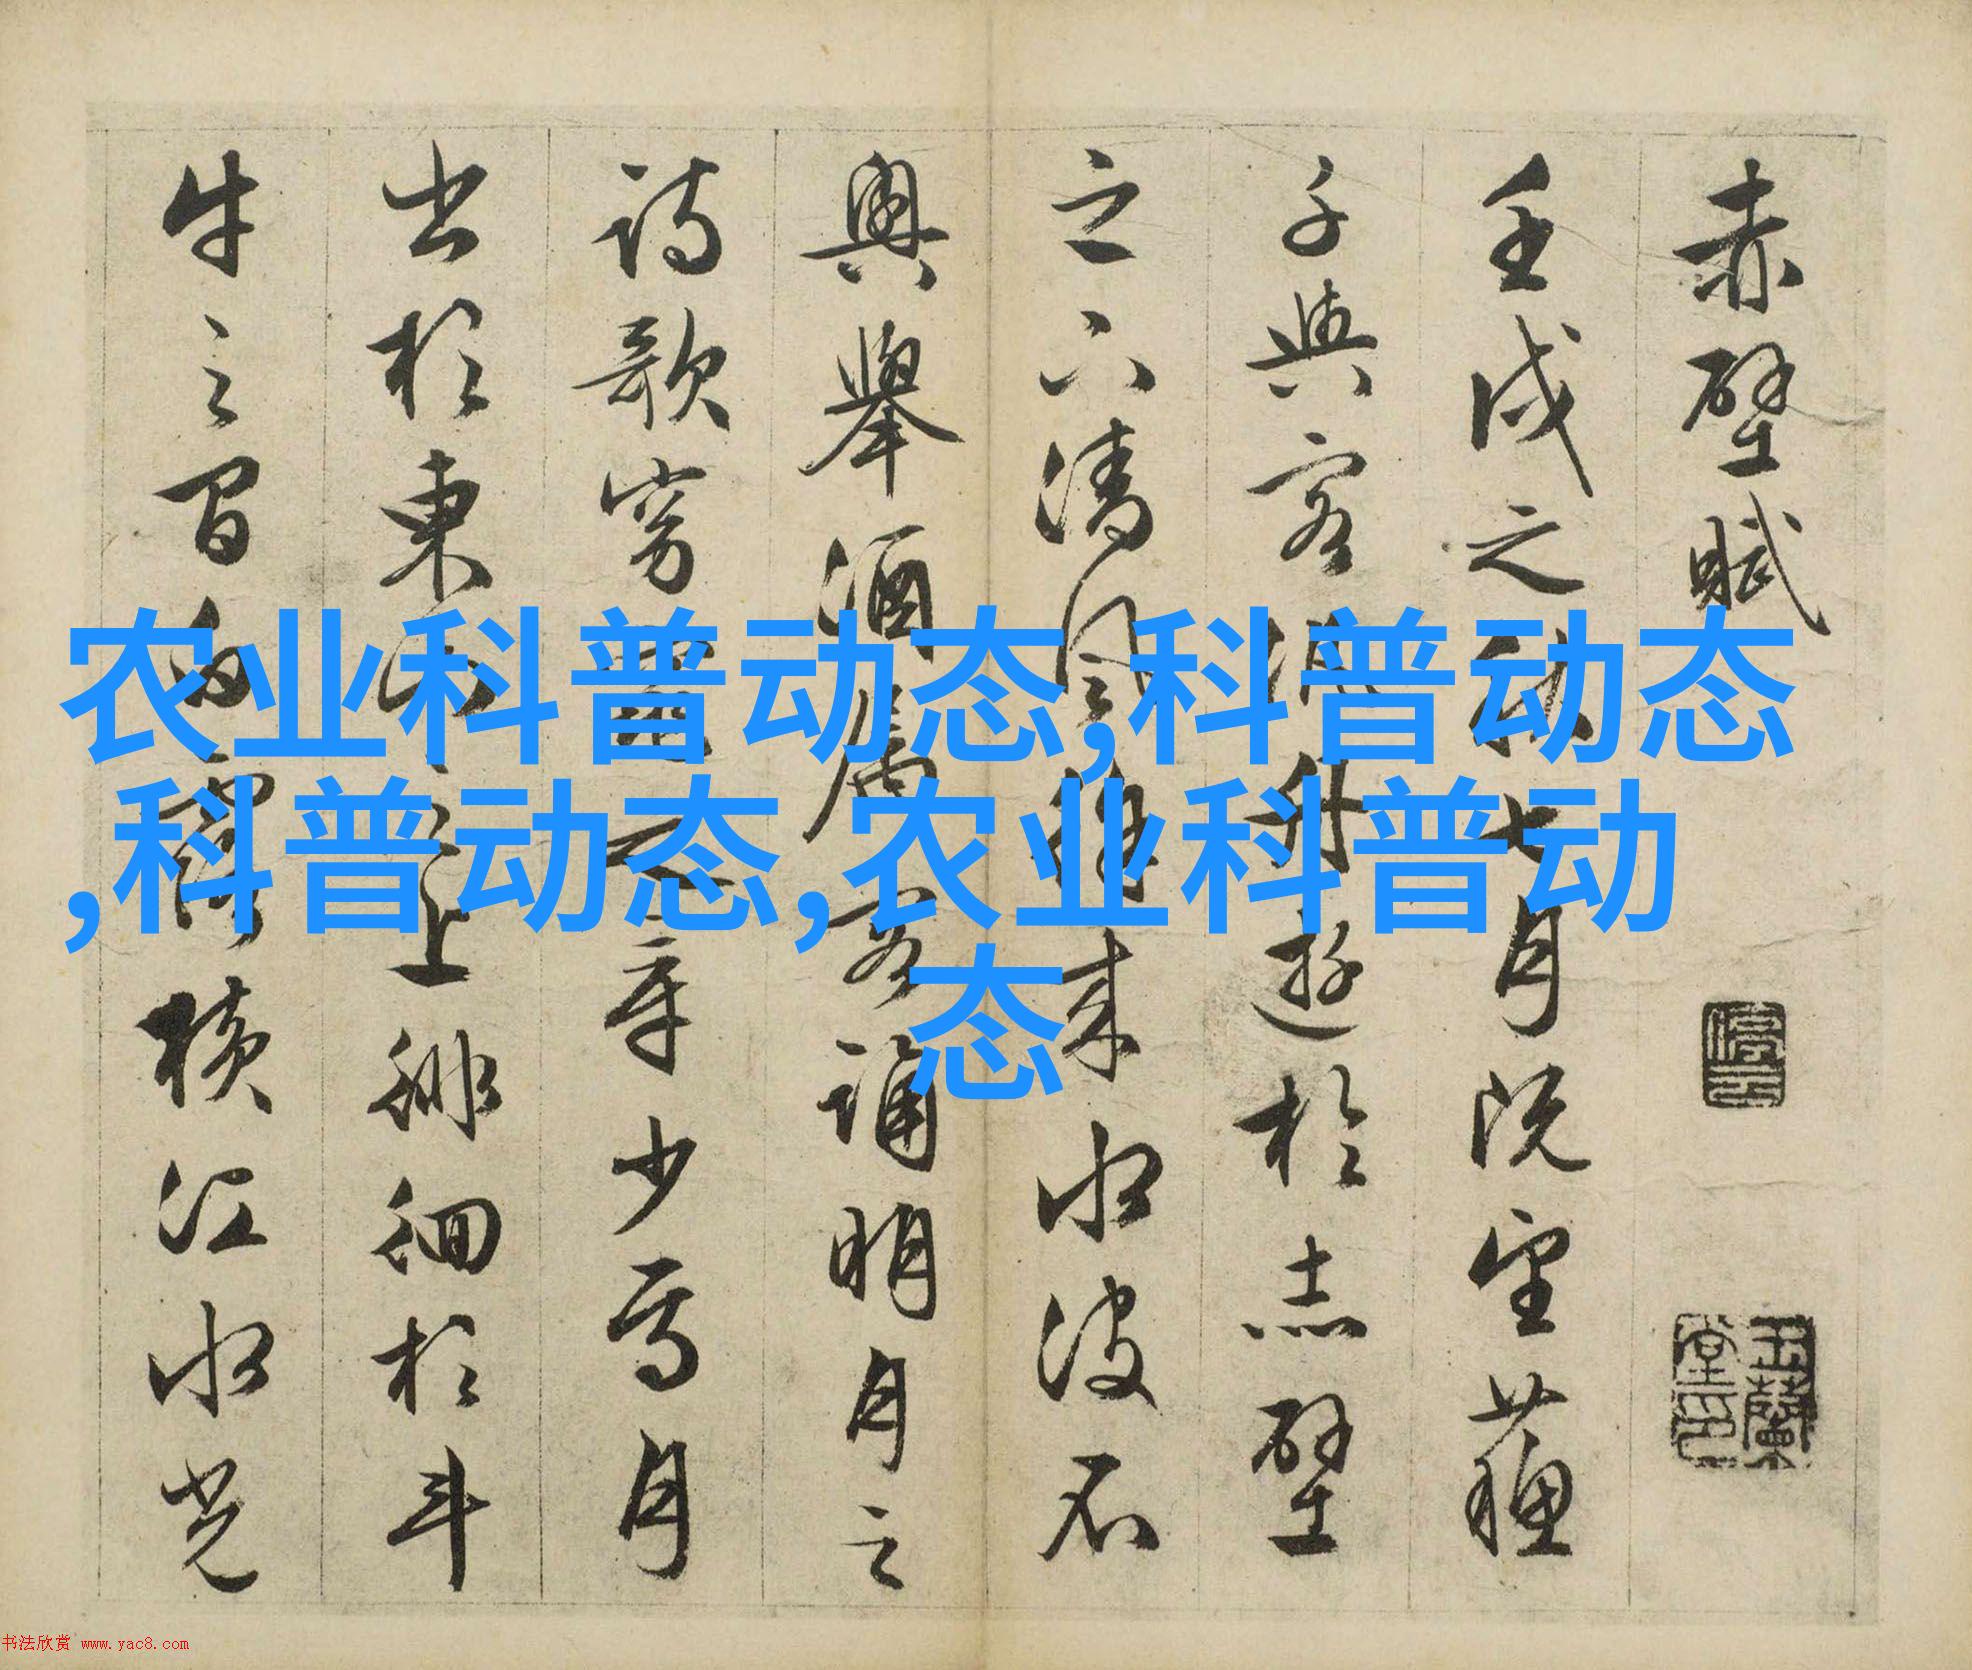 赤壁賦
壬戌之秋七月既望蘇
子與客泛舟遊於赤壁
之下清風徐來水波不
興舉酒屬客誦明月之
詩歌窈窕之章少焉月
出於東山之上徘徊於斗
牛之間白露橫江水光
农业科普动态,科普动态
,科普动态,农业科普动
态
停雲
玉蘭堂印
书法欣赏 www.yac8.com